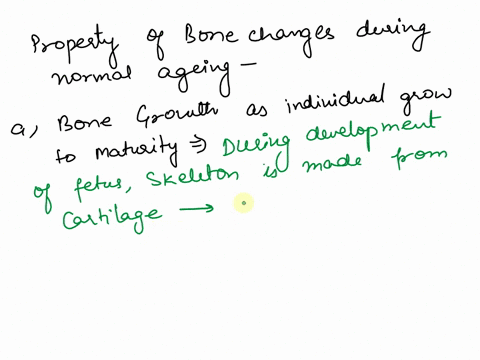 Property of Bone changes during
normal ageing -
a, Bone Growth as individual grow
to maturity ⇒ During development
of fetus, Skeleton is made from
Cartilage →